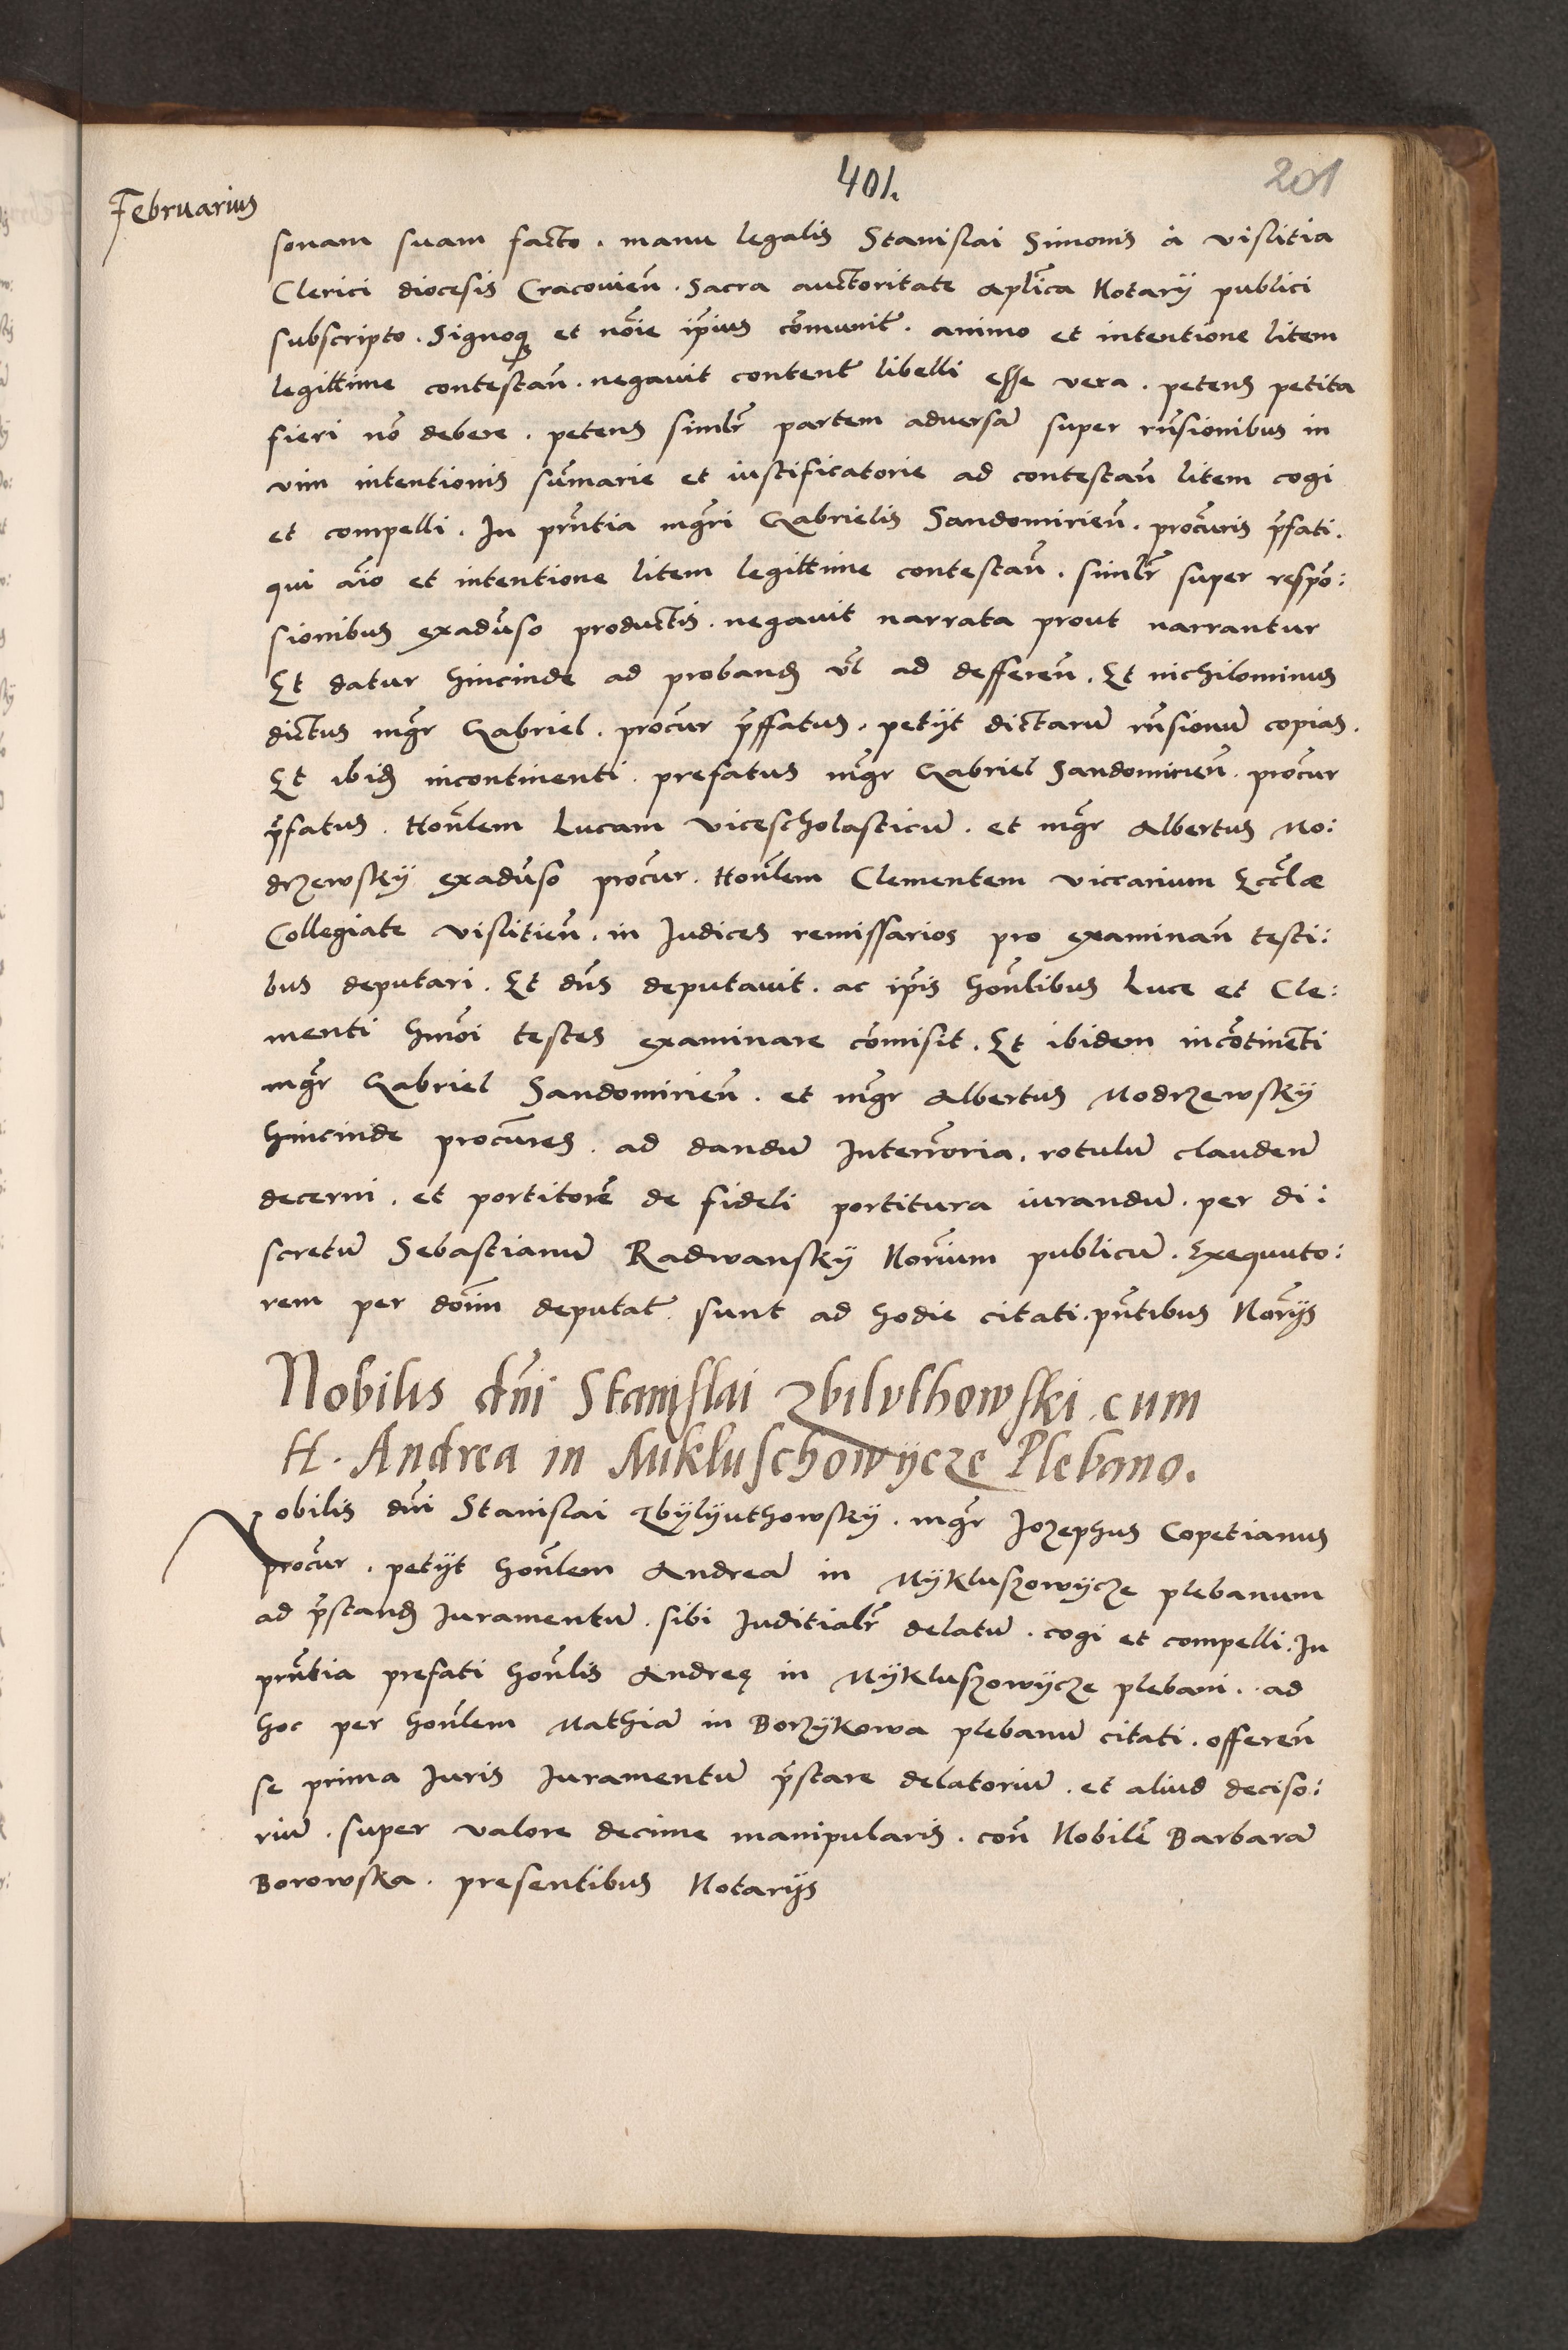 401.
201
Februarius
sonam suam facto . manu legalis Stanislai Simonis à vislitia
Clerici diocesis Cracovien̄ . Sacra auctoritate aplica Notarÿ publici
subscripto . Signoq̨ et nōie ip̄ius cōmunit̄ . animo et intentione litem
legittime contestan̄ . negavit content̄ libelli esse vera . petens petita
fieri nō debere . petens simlr̄ partem adversā super rn̄sionibus in
vim intentionis sum̄arie et iustificatorie ad contestan̄ litem cogi
et compelli . In prn̄tia mgr̄i Gabrielis Sandomirien̄ . procuris p̄fati .
qui aīo et intentione litem legittime contestan̄ . simlr̄ super respō:
sionibus exadūso productis . negavit narrata prout narrantur
Et datur hincinde ad proband̨ vl̄ ad defferen̄ . Et nichilominus
dictus mgr̄ Gabriel . procur̄ p̄ffatus . petÿt dictarū rn̄sionū copias .
Et ibid̨ incontinenti . prefatus mgr̄ Gabriel Sandomirien̄ . procur̄
p̄fatus . Honl̄em Lucam vicescholasticū . et mgr̄ Albertus Mo:
drzewskÿ exadūso procur̄ . Honl̄em Clementem viccarium Eccl̄æ
Collegiate vislitien̄ . in Judices remissarios pro examinan̄ testi:
bus deputari . Et dn̄s deputavit . ac ip̄is honl̄ibus Luce et Cle:
menti hmōi testes examinare cōmisit . Et ibidem incōtinēti
mgr̄ Gabriel Sandomirien̄ . et mgr̄ Albertus Modrzewskÿ
hincinde procur̄es . ad dandū Interr̄oria . rotulū claudēn
decerni . et portitorē de fideli portitura iurandū . per di:
scretū Sebastianū Radwanskÿ Nor̄ium publicū . Exequuto:
rem per dōim deputat̄ . sunt ad hodie citati . pn̄tibus Nor̄ÿs
Nobilis dn̄i Stanislai Zbiluthowski cum
H . Andrea in Mikluschowÿcze Plebano .
Nobilis dn̄i Stanislai Zbÿlÿuthowskÿ . mgr̄ Jozephus Copetianus
procur̄ . petÿt honl̄em Andreā in Mÿkluszowÿcze plebanum
ad p̄stand̨ Juramentū . sibi Juditialr̄ delatū . cogi et compelli . In
prn̄tia prefati honl̄is Andreę in Mÿkluszowÿcze plebani . ad
hoc per honl̄em Mathiā in Borzÿkowa plebanū citati . offeren̄
se prima Juris Juramentū p̄stare delatoriū . et aliud deciso:
riū . super valore decime manipularis . con̄ Nobilē Barbarā
Borowska . presentibus Notarÿs